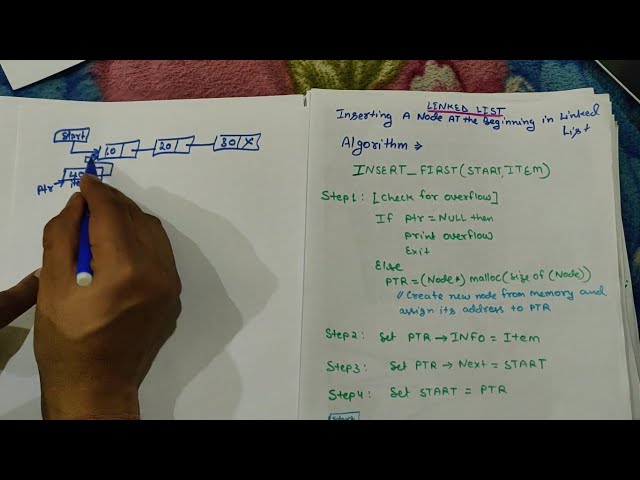 Start
10
20
30 X
40
Ptr
LINKED LIST
Inserting A Node At the Beginning in Linked
List
Algorithm →
INSERT_FIRST(START,ITEM)
Step1: [Check for overflow]
If ptr = NULL then
print overflow
Exit
Else
PTR = (Node*) malloc(size of (Node))
// Create new node from memory and
assign its address to PTR
Step2: Set PTR → INFO = Item
Step3: Set PTR → Next = START
Step4: Set START = PTR
Start